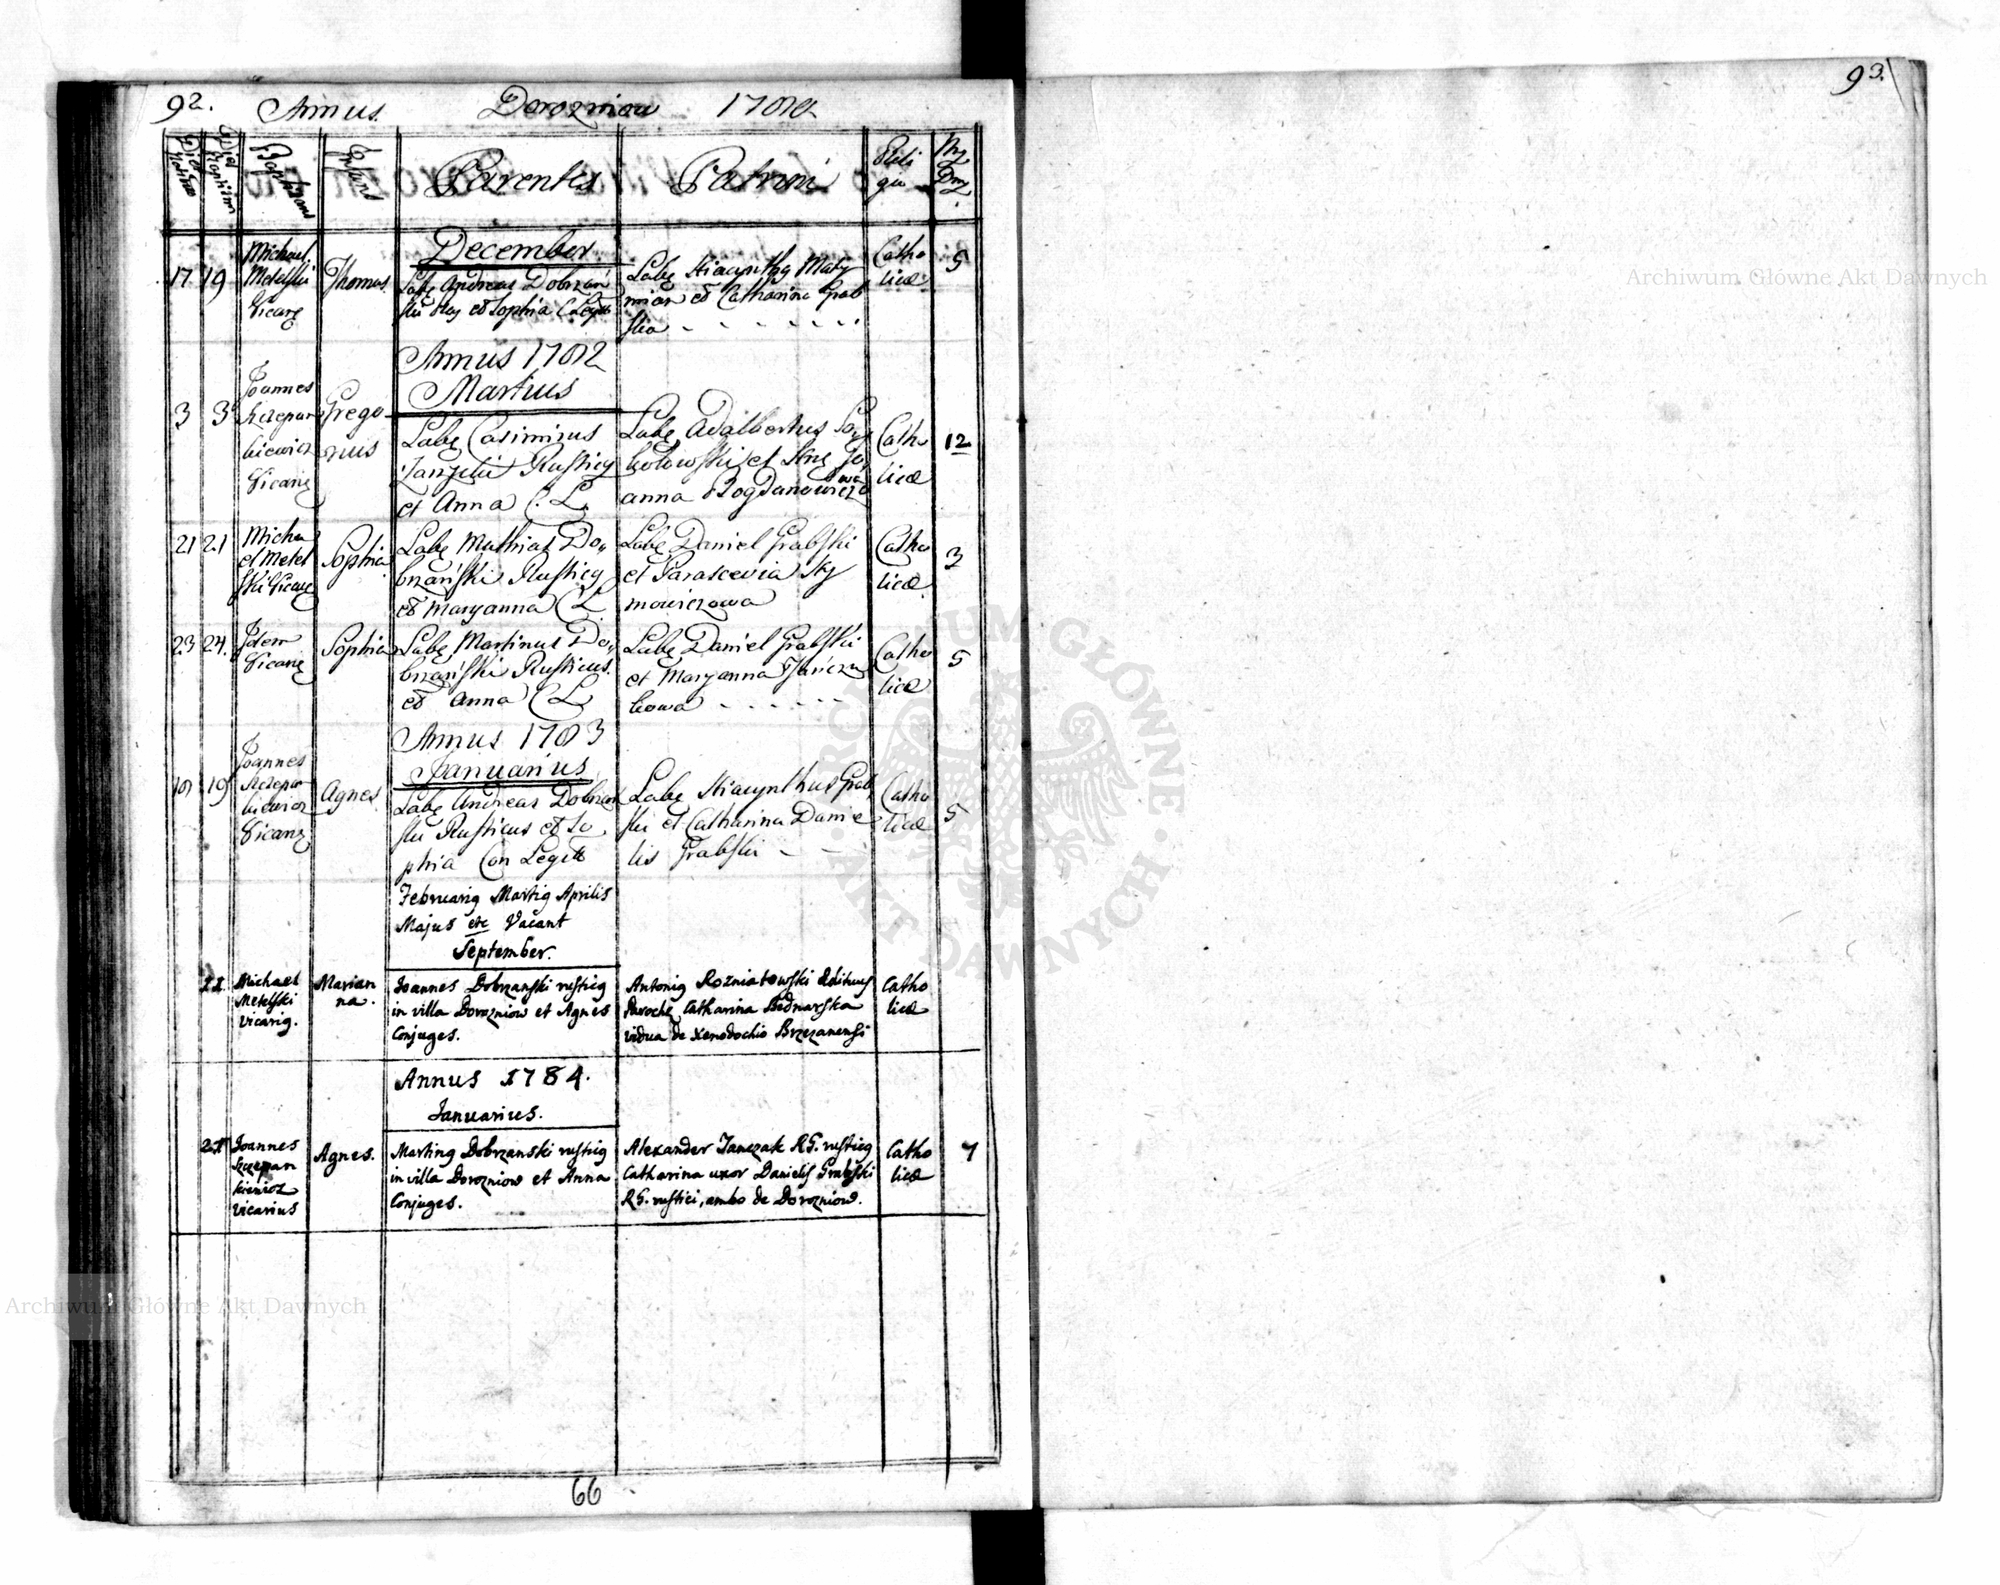 92. Annus Dorozniow 1782
93.
Dies Nativitatis
Dies Baptismi
Baptisans
Infans
Parentes
Patrini
Reli
gio
December
17 19 Michael
Metelski
Vicarg
Thomas
Labg Andreas Dobrzań
ski et Sophia C Legtt
Labg Hiacynthg Maty
mian et Catharina Grab
ska
Catho
licæ
5
Annus 1782
Martius
3 3 Joannes
Szczepan
kiewicz
Vicarig
Grego
rius
Labg Casimirus
Rusticg
et Anna C. L.
Labg Adalbertus
et
anna Bogdanowiczo
wa
Catho
licæ
12
21 21 Micha
el Metel
ski Vicarg
Sophia
Labg Mathias Do„
brzański Rusticg
et Maryanna C L
Labg Daniel Grabski
et Parascevia Szy
mowiczowa
Catho
licæ
3
23 24. Idem
Vicarig
Sophia
Labg Martinus Do„
brzański Rusticus.
et Anna C L
Labg Daniel Grabski
et Maryanna Jańcza
kowa
Catho
licæ
5
Annus 1783
Januarius
18 19 Joannes
Szczepan
kiewicz
Vicarig
Agnes
Labg Andreas Dobrzań
ski Rusticus et So
phia Con Legitt
Labg Hiacynthus Grab
ski et Catharina Danie
lis Grabski
Catho
licæ
5
Februarig Martig Aprilis
Majus etc Vacant
September.
11 Michael
Metelski
Vicarig.
Marian
na.
Joannes Dobrzanski rusticg
in villa Dorozniow et Agnes
Conjuges.
Antonig Rozniatowski Ædituus
Parochg Catharina Bednarska
vidua de Xenodochio Brzezanensi
Catho
licæ
Annus 1784.
Januarius.
21 Joannes
Szczepan
kiewicz
Vicarius
Agnes.
Marting Dobrzanski rusticg
in villa Dorozniow et Anna
Conjuges.
Alexander Janczak RG. rusticg
Catharina uxor Danielis Grabski
RG. rustici, ambo de Dorozniow.
Catho
licæ
7
66
Archiwum Główne Akt Dawnych
Archiwum Główne Akt Dawnych
ARCHIWUM GŁÓWNE AKT DAWNYCH